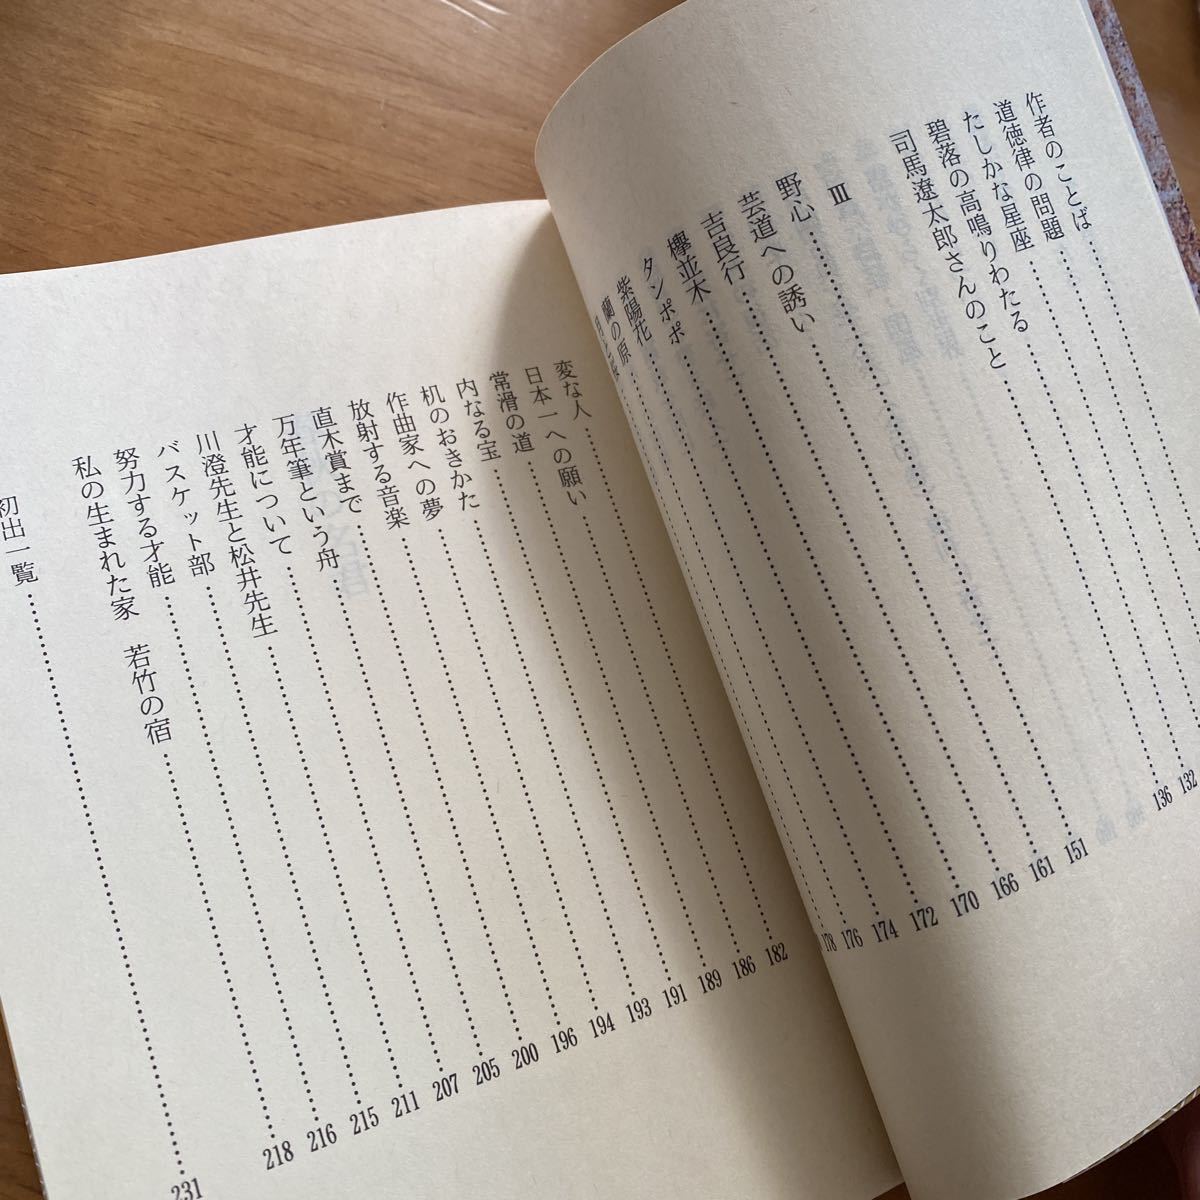 作者のことば
道徳律の問題
たしかな星座
碧落の高鳴りわたる 132
司馬遼太郎さんのこと 136
III
野心 151
芸道への誘い 161
吉良行 166
欅並木 170
タンポポ 172
紫陽花 174
蘭の原 176
178
変な人 182
日本一への願い 186
常滑の道 189
内なる宝 191
机のおきかた 193
作曲家への夢 194
放射する音楽 196
直木賞まで 200
万年筆という舟 205
才能について 207
川澄先生と松井先生 211
バスケット部 215
努力する才能 216
私の生まれた家　若竹の宿 218
初出一覧 231